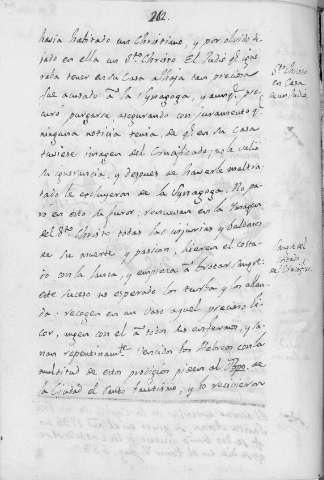 262.
havia habitado un Christiano, y por olvido de-
jado en ella un Sto. Christo. El Judio qe. igno-
raba tener en su Casa alhaja tan preciosa
fue acusado a la Synagoga, y aunqe. pro-
curó purgarse asegurando con juramento qe.
ninguna noticia tenia, de qe. en su Casa
tuviese imagen del Crucificado, no le valió
su constancia, y despues de haverle maltra-
tado le excluyeron de la Synagoga. No pa-
ró en esto su furor, renuevan en la Imagen
del Sto. Christo todas las injurias y baldones
de su muerte, y pasion, hieren el costa-
do con la lanza, y empieza a brotar sangre.
este suceso no esperado los turba y los ablan-
da: recogen en un vaso aquel precioso li-
cor, ungen con el a todos los enfermos, y sa-
nan repentinamte. Vencidos los Hebreos con la
multitud de estos prodigios piden al Obpo. de
la Ciudad el Santo Bautismo, y lo recibieron
Sto. Christo
en Casa
de un Judio
Sangre del
costado
de Christo